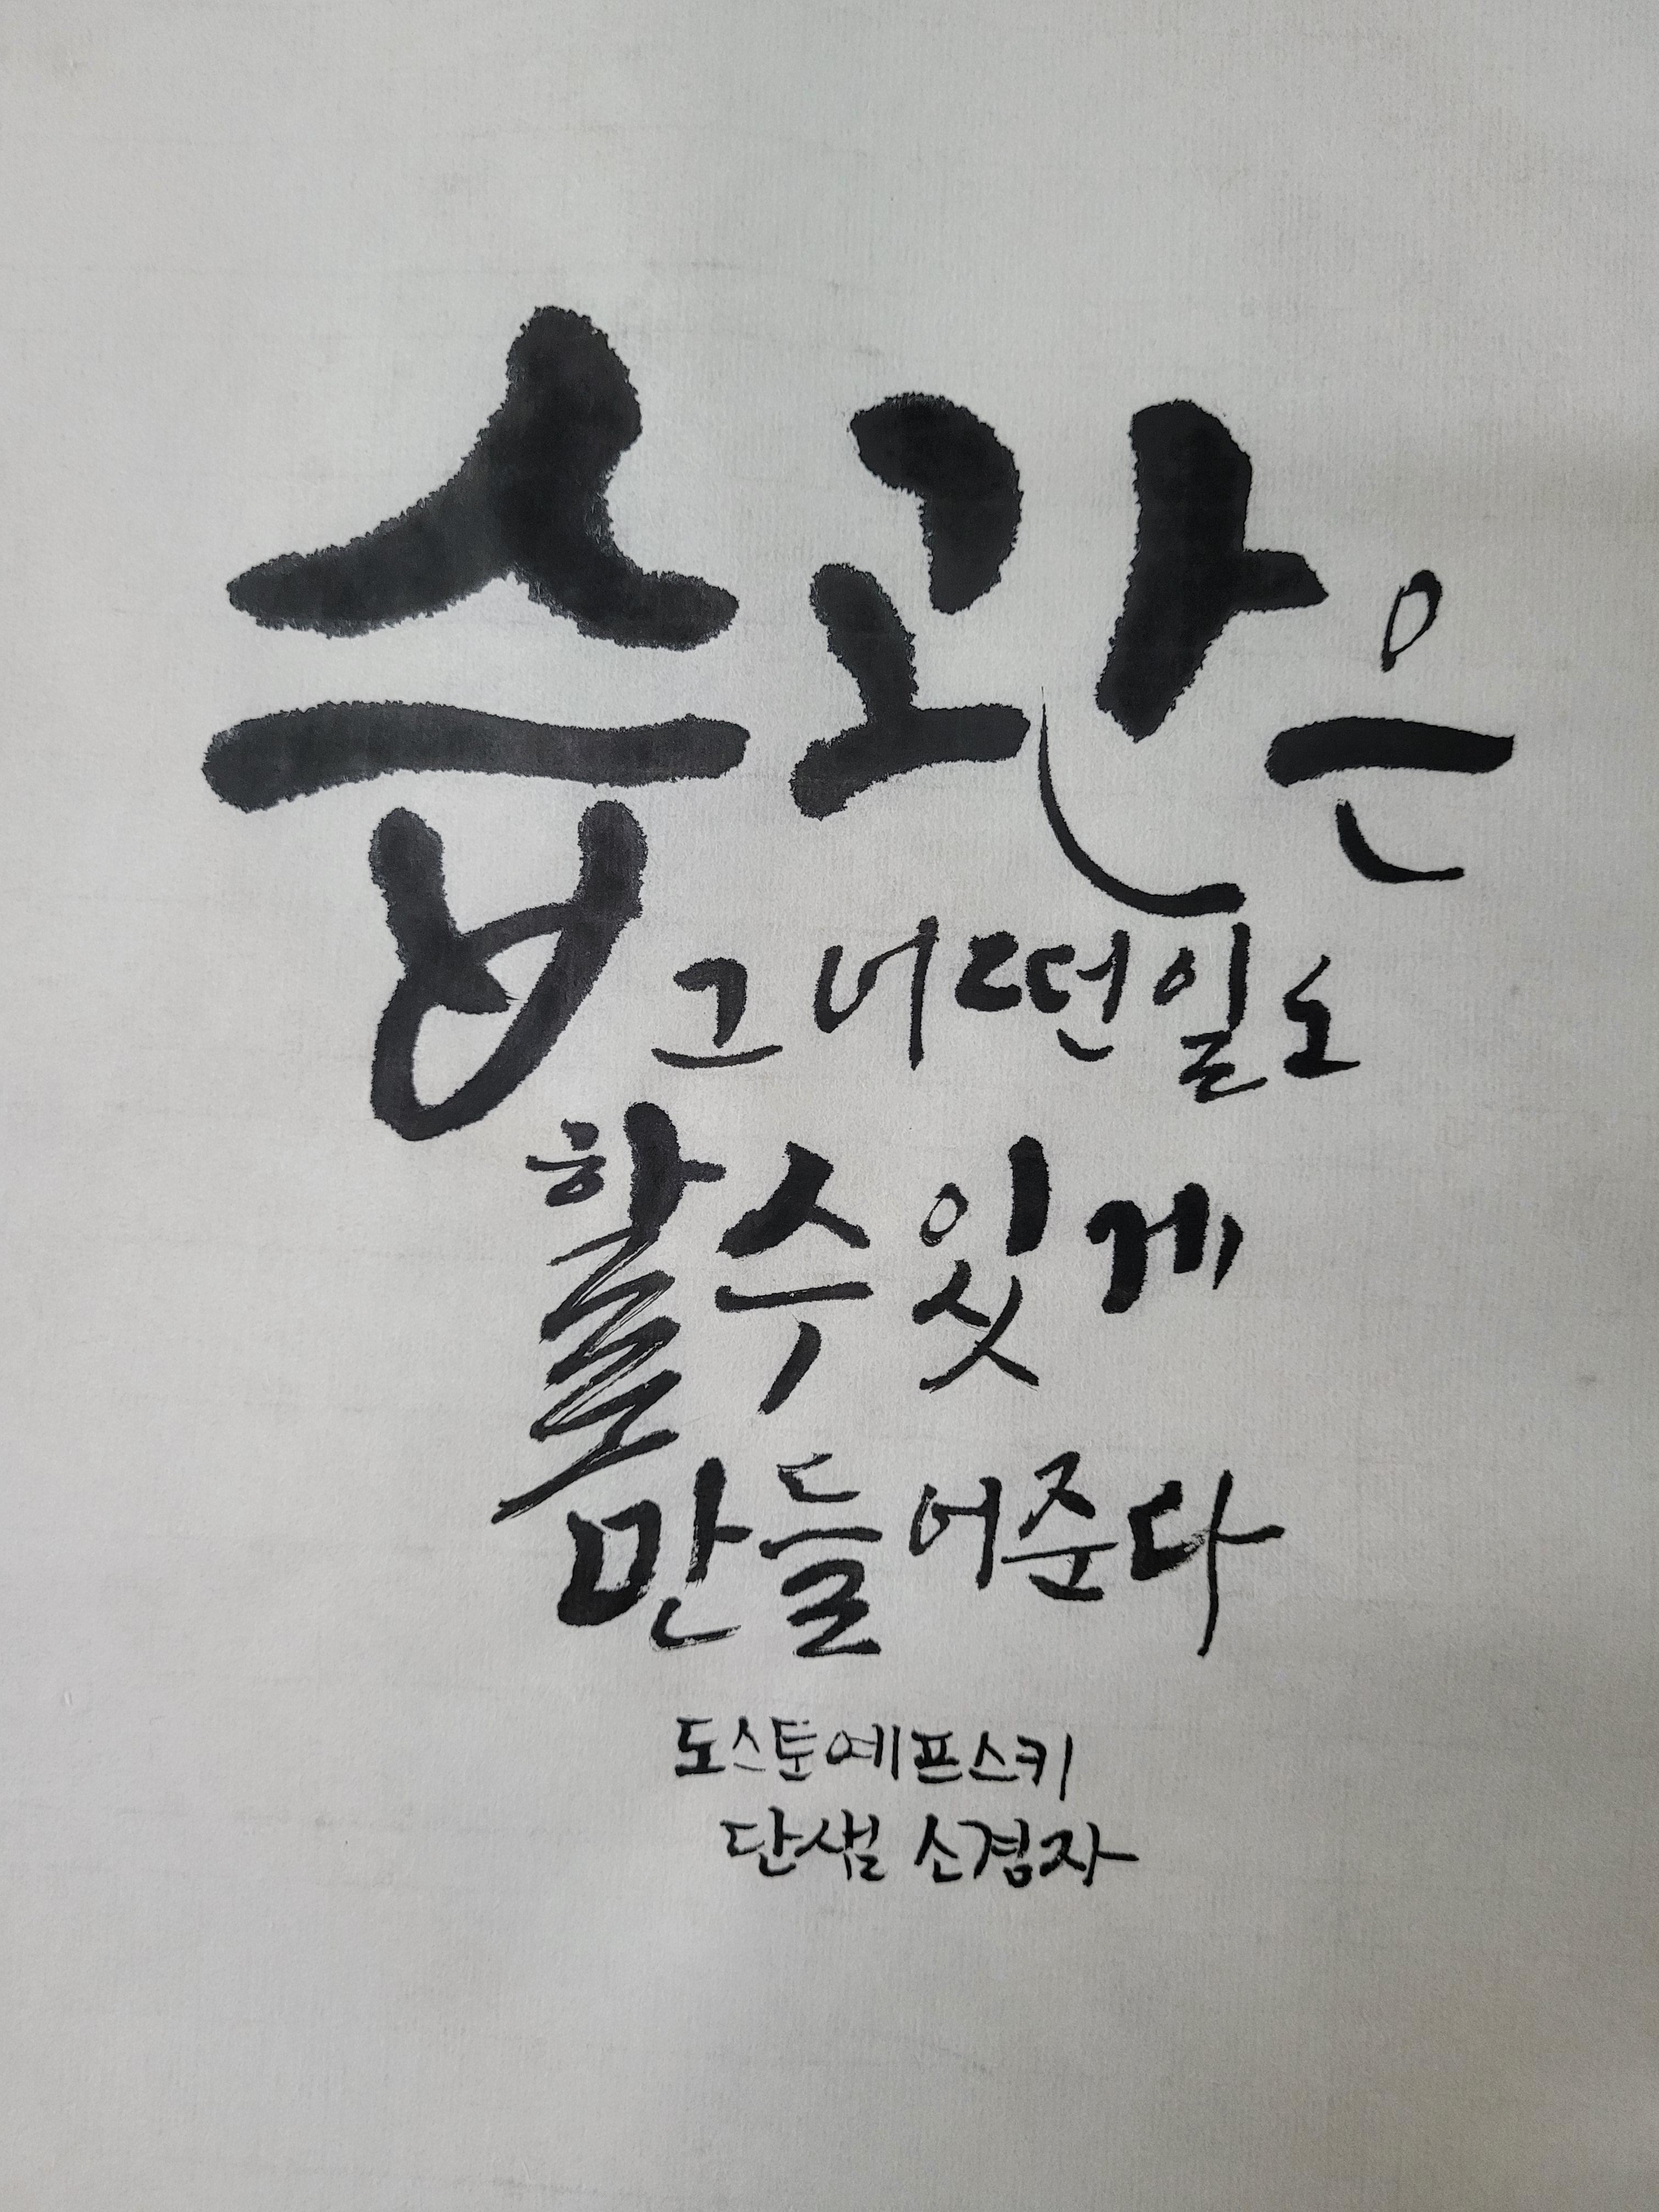 습관은
그 어떤 일도
할 수 있게
만들어준다
도스토예프스키
단샘 소경자